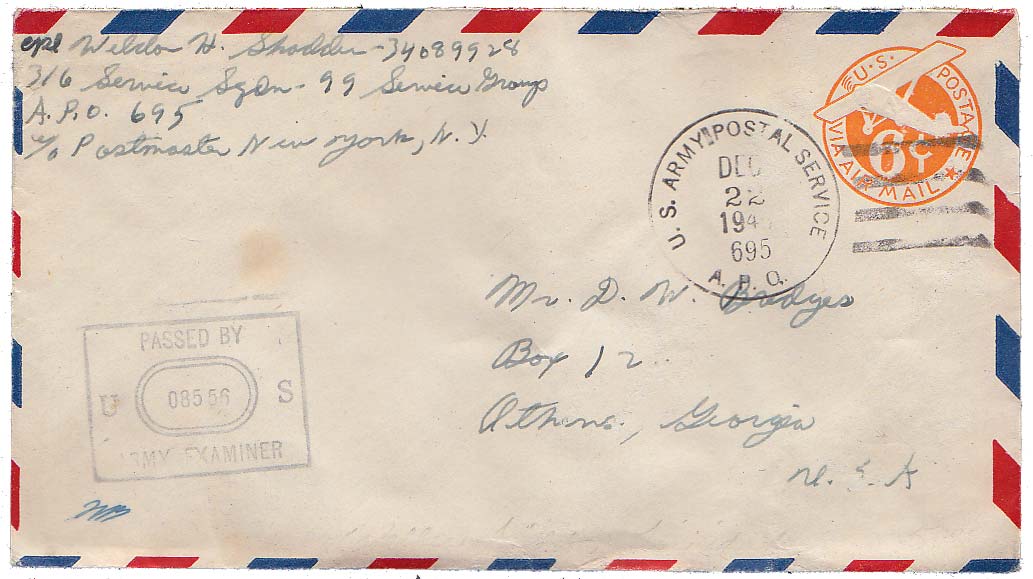 Cpl Weldon H. Shadder - 34089928
316 Service Sqdn - 99 Service Group
A.P.O. 695
c/o Postmaster New York, N.Y.
U.S. POSTAGE
6¢
VIA AIR MAIL
U.S. ARMY POSTAL SERVICE
DEC
22
194
695
A.P.O.
Mr. D. W. Bridges
Box 12
Athens, Georgia
U.S.A
PASSED BY
U 08556 S
ARMY EXAMINER